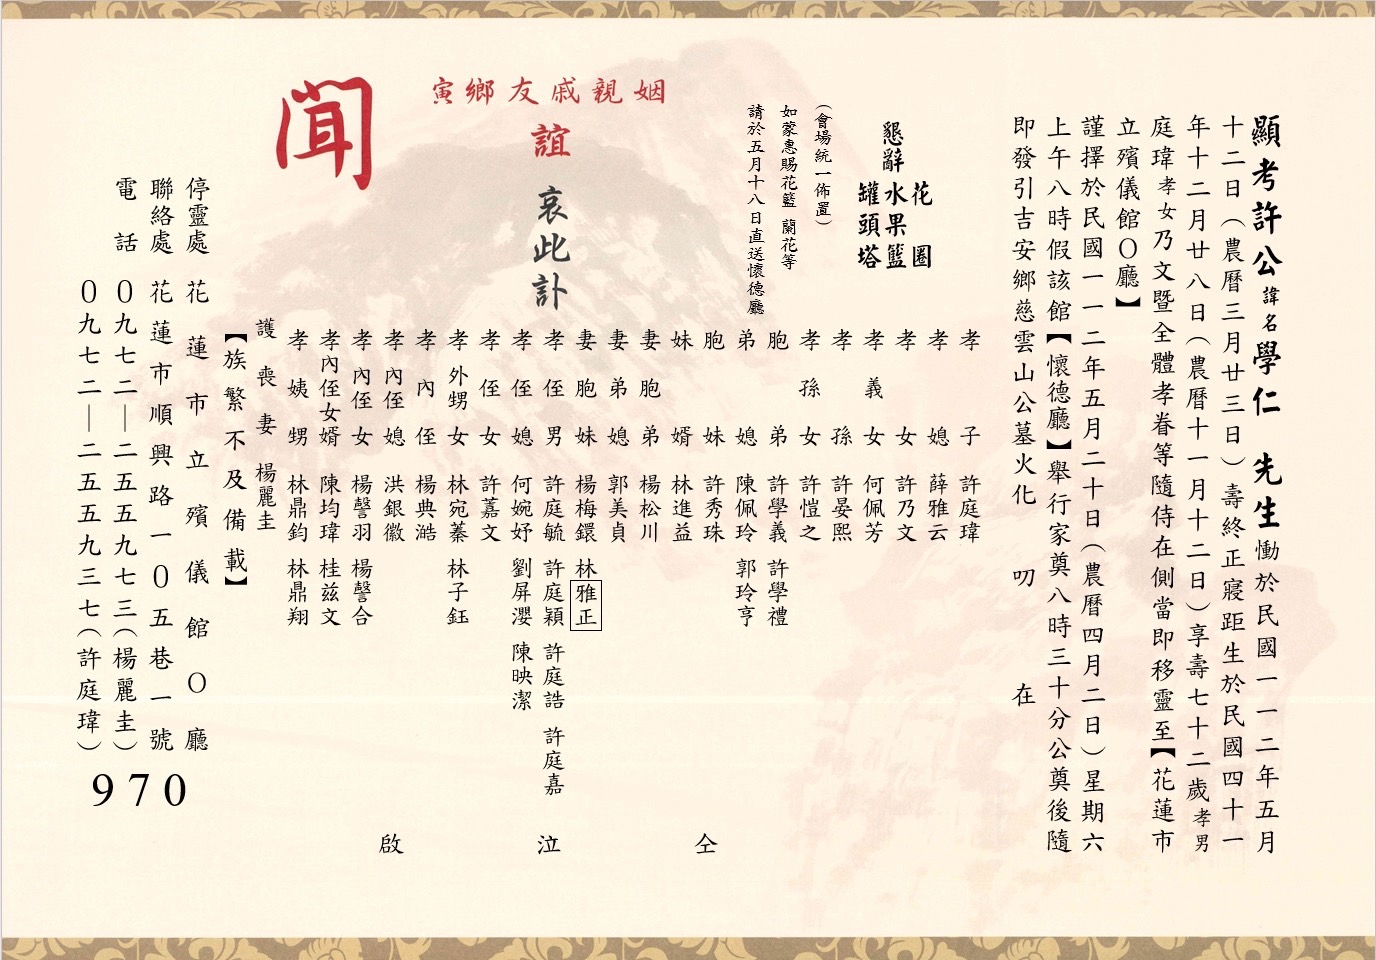 顯考許公諱名學仁 先生慟於民國一一二年五月
十二日(農曆三月廿三日)壽終正寢距生於民國四十一
年十二月廿八日(農曆十一月十二日)享壽七十二歲孝男
庭瑋孝女乃文暨全體孝眷等隨侍在側當即移靈至【花蓮市
立殯儀館O廳】
謹擇於民國一一二年五月二十日(農曆四月二日)星期六
上午八時假該館【懷德廳】舉行家奠八時三十分公奠後隨
即發引吉安鄉慈雲山公墓火化 叨 在
懇辭
花圈
水果籃
罐頭塔
(會場統一佈置)
如蒙惠賜花籃 蘭花等
請於五月十八日直送懷德廳
姻親戚友鄉寅
誼
哀此訃
聞
孝子 許庭瑋
孝媳 薛雅云
孝女 許乃文
孝義女 何佩芳
孝孫 許晏熙
孝孫女 許愷之
胞弟 許學義 許學禮
弟媳 陳佩玲 郭玲亨
胞妹 許秀珠
妹婿 林進益
妻胞弟 楊松川
妻弟媳 郭美貞
妻胞妹 楊梅鐶 林雅正
孝侄男 許庭毓 許庭穎 許庭誥 許庭嘉
孝侄媳 何婉妤 劉屏瓔 陳映潔
孝侄女 許嘉文
孝外甥女 林宛蓁 林子鈺
孝內侄 楊典澔
孝內侄媳 洪銀徽
孝內侄女 楊謦羽 楊謦合
孝內侄女婿 陳均瑋 桂玆文
孝姨甥 林鼎鈞 林鼎翔
護喪妻 楊麗圭
【族繁不及備載】
仝 泣 啟
停靈處 花蓮市立殯儀館O廳
聯絡處 花蓮市順興路一0五巷一號
電話 0九七二—二五五九七三(楊麗圭)
0九七二—二五五九三七(許庭瑋)
970